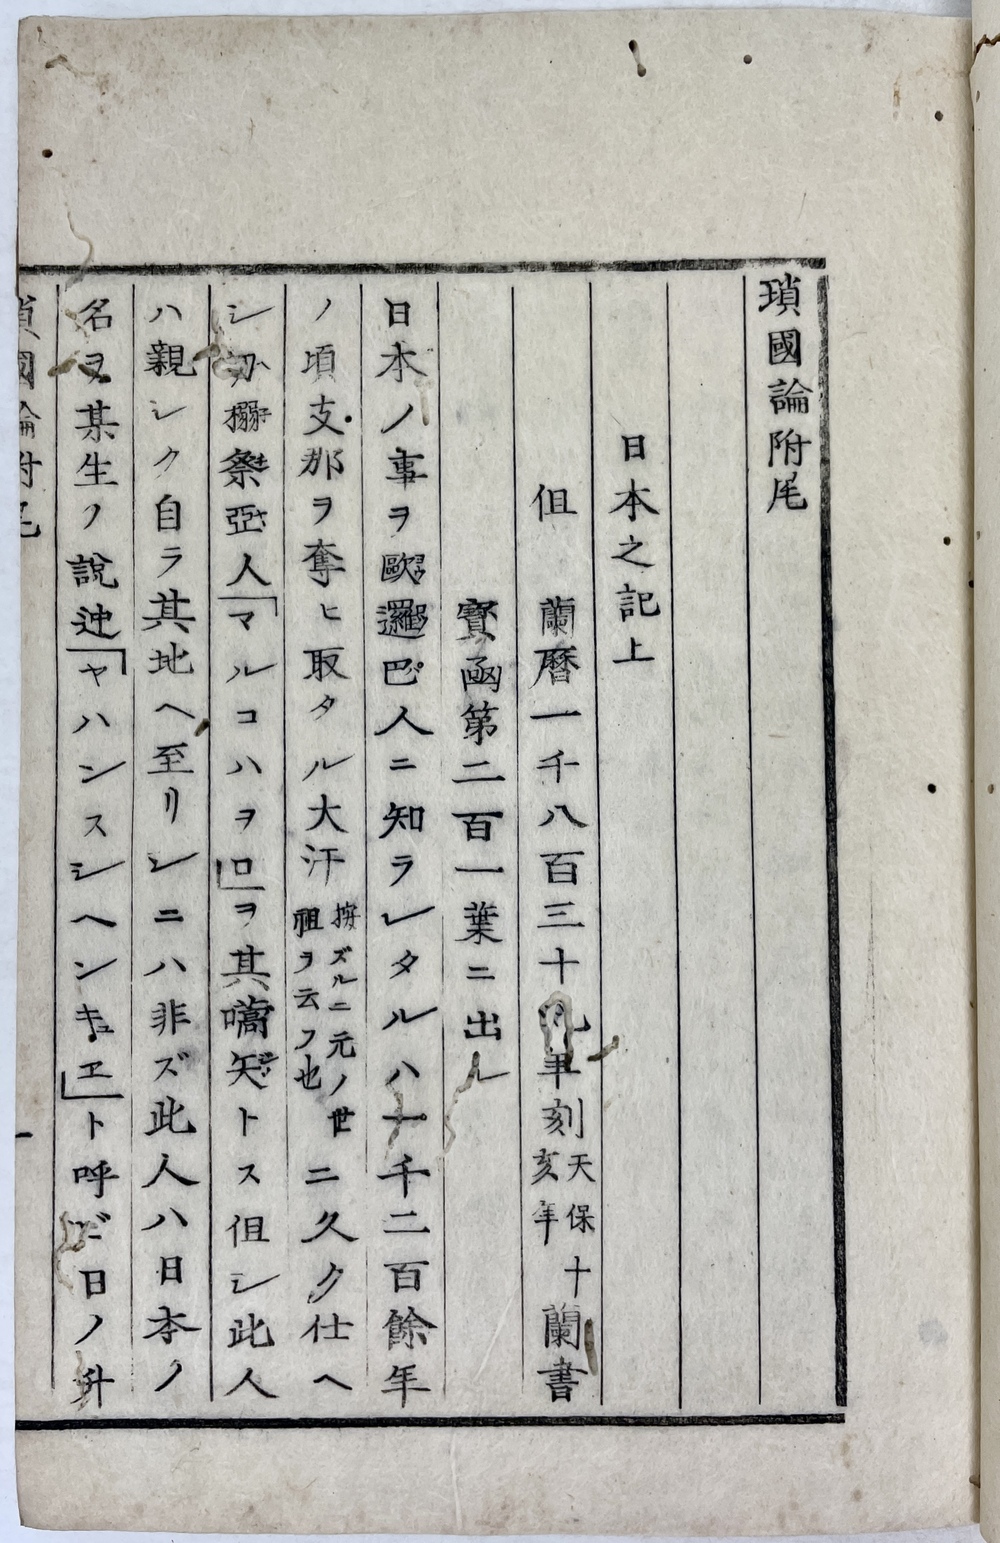 瑣國論附尾
日本之記上
伹 蘭曆一千八百三十九年刻天保十亥年蘭書
寳凾第二百一葉ニ出ル
日本ノ事ヲ歐邏巴人ニ知ラレタルハ一千二百餘年
ノ頃支那ヲ奪ヒ取タル大汗按ズルニ元ノ世祖ヲ云フ也ニ久ク仕ヘ
シ勿搦祭亞人「マルコハヲロ」ヲ其嚆矢トス伹シ此人
ハ親シク自ラ其地ヘ至リシニハ非ズ此人ハ日本ノ
名ヲ某生ノ說迚「ヤハンスシヘンキュヱ」ト呼ビ日ノ升
國論附